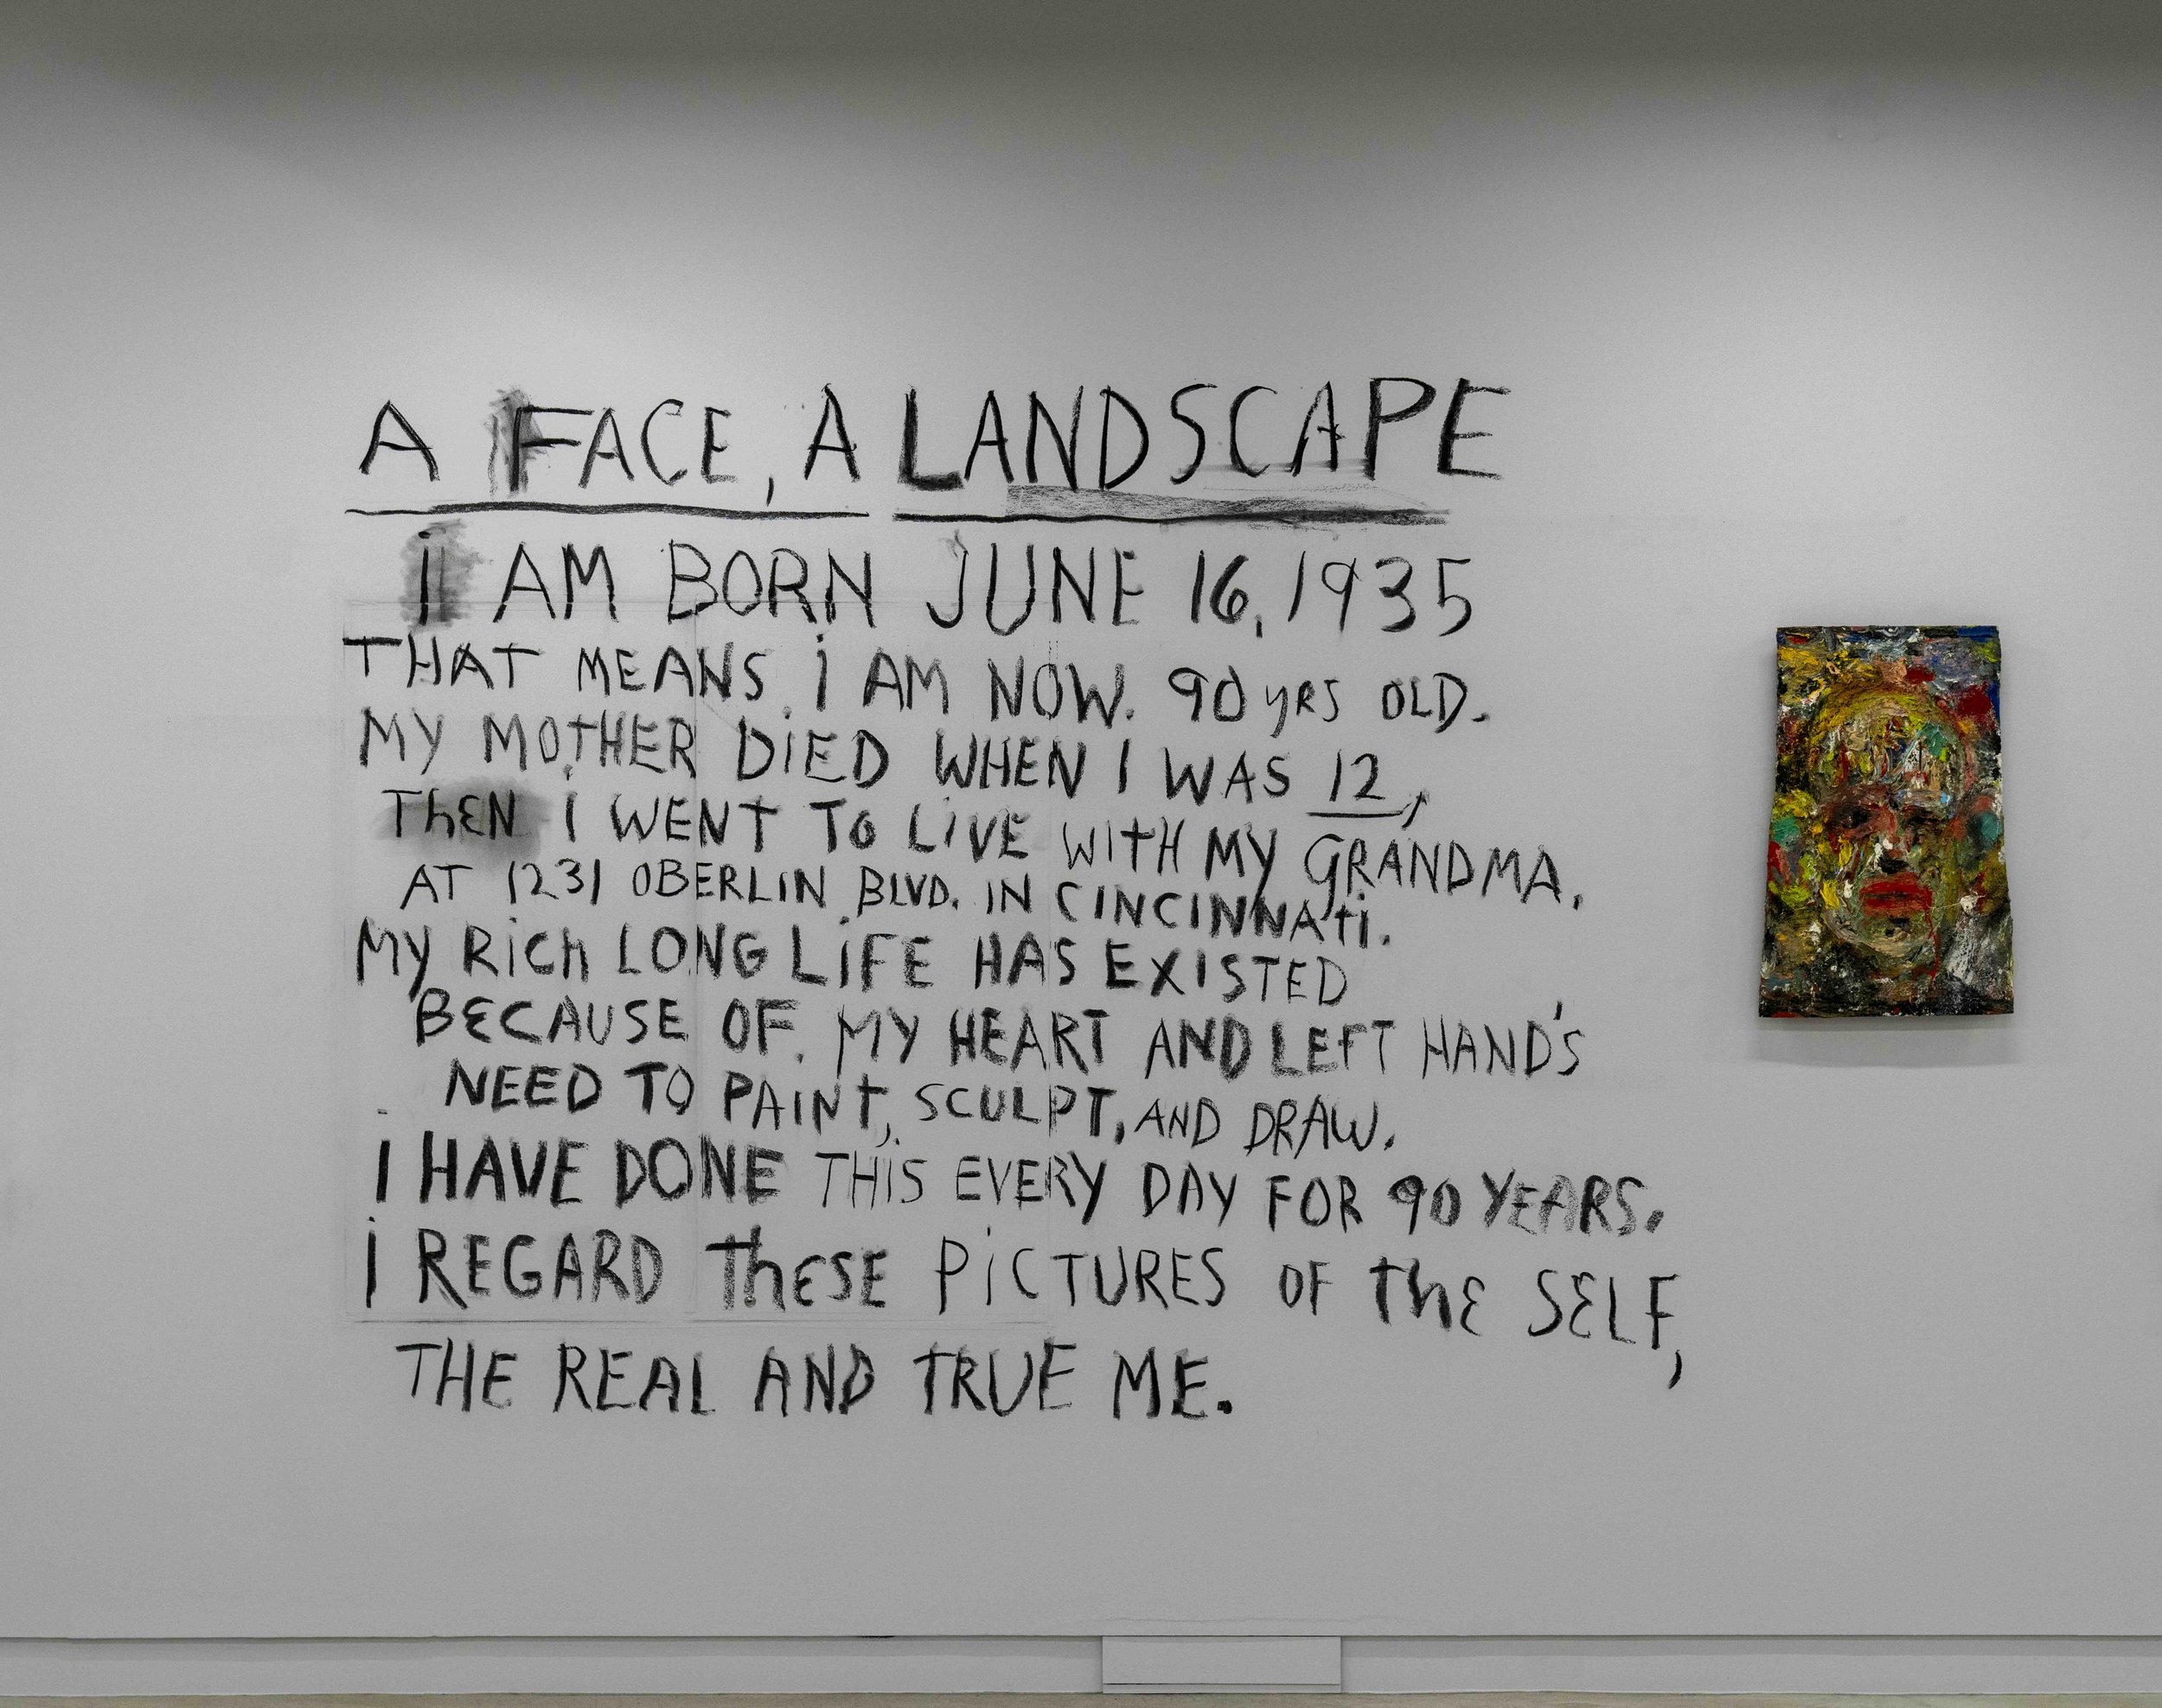 A FACE, A LANDSCAPE
i AM BORN JUNE 16, 1935
THAT MEANS i AM NOW. 90 yRS OLD.
MY MOTHER DiED WHEN I WAS 12,
ThEN i WENT To LiVE WitH MY GRANDMA,
AT 1231 OBERLIN BLVD. IN CINCINNAti.
My Rich LONG LiFE HAS EXISTED
BECAUSE OF. MY HEART AND LEfT HAND'S
NEED TO PAINT, SCULPT, AND DRAW.
i HAVE DONE THiS EVERY DAY FOR 90 YEARS.
i REGARD ThESE PiCTURES OF thE SELF,
THE REAL AND TRUE ME.